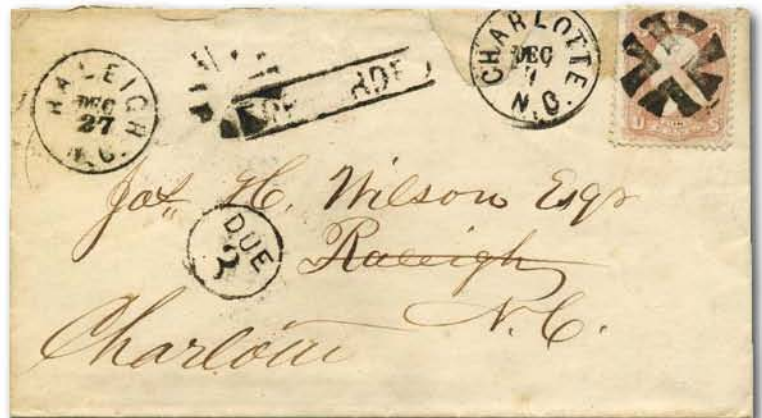 RALEIGH
DEC
27
N.C.
CHARLOTTE
DEC
N.C.
U S
Jos. H. Wilson Esqr
DUE
3
Raleigh
N.C.
Charlotte